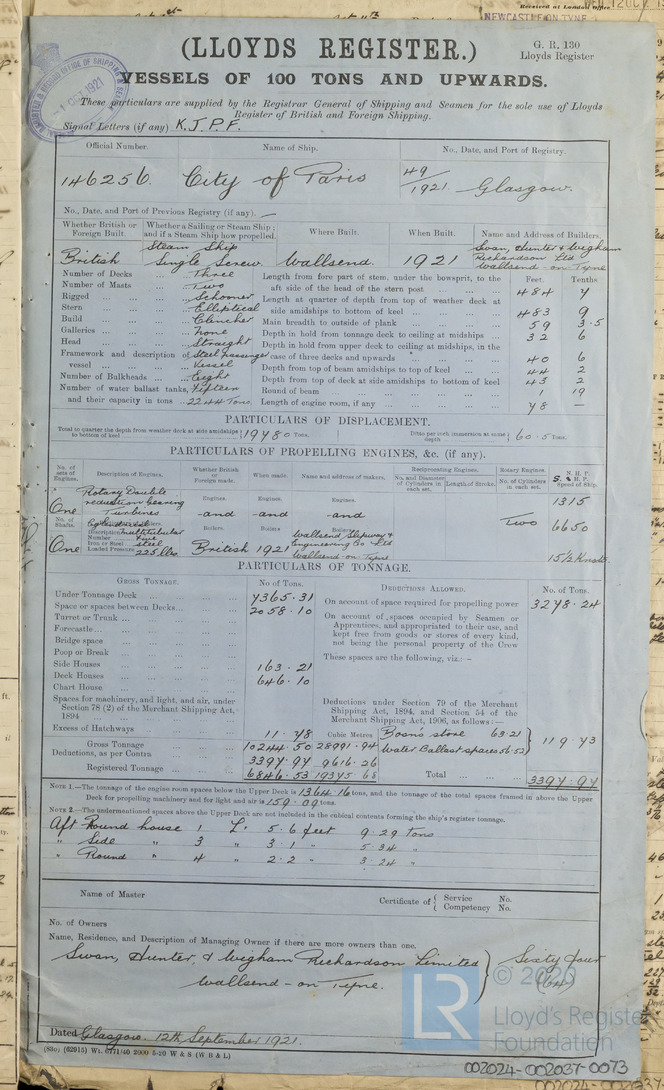 Received at London Office
NEWCASTLE ON TYNE
(LLOYDS REGISTER.)
G. R. 130
Lloyds Register
VESSELS OF 100 TONS AND UPWARDS.
These particulars are supplied by the Registrar General of Shipping and Seamen for the sole use of Lloyds
Register of British and Foreign Shipping.
Signal Letters (if any) K.J.P.F.
Official Number. Name of Ship. No., Date, and Port of Registry.
146256. City of Paris 49/1921. Glasgow.
No., Date, and Port of Previous Registry (if any). —
Whether British or Foreign Built. Whether a Sailing or Steam Ship; and if a Steam Ship how propelled. Where Built. When Built. Name and Address of Builders.
British Steam Ship Single Screw Wallsend. 1921 Swan, Hunter & Wigham Richardson Ltd Wallsend-on-Tyne
Feet. Tenths.
Number of Decks Three
Number of Masts Two
Rigged Schooner
Stern Elliptical
Build Clencher
Galleries None
Head Straight
Framework and description of vessel Steel Passenger Vessel
Number of Bulkheads Eight
Number of water ballast tanks, Fifteen
and their capacity in tons 2244 Tons
Length from fore part of stem, under the bowsprit, to the aft side of the head of the stern post 484 7
Length at quarter of depth from top of weather deck at side amidships to bottom of keel 483 9
Main breadth to outside of plank 59 3.5
Depth in hold from tonnage deck to ceiling at midships 32 6
Depth in hold from upper deck to ceiling at midships, in the case of three decks and upwards 40 6
Depth from top of beam amidships to top of keel 44 2
Depth from top of deck at side amidships to bottom of keel 43 2
Round of beam 1 19
Length of engine room, if any 78 —
PARTICULARS OF DISPLACEMENT.
Total to quarter the depth from weather deck at side amidships to bottom of keel 19780 Tons. Ditto per inch immersion at same depth 60.5 Tons.
PARTICULARS OF PROPELLING ENGINES, &c. (if any).
No. of sets of Engines. Description of Engines. Whether British or Foreign made. When made. Name and address of makers. Reciprocating Engines. Rotary Engines. N.H.P.
No. and Diameter of Cylinders in each set. Length of Stroke. No. of Cylinders in each set. S.H.P. Speed of Ship.
One Rotary Double reduction Gearing Turbines Engines. and Engines. and Engines. and 1315
No. of Shafts. Description Multitubular Boilers. Boilers Boilers Two 6650
Number
Iron or Steel Steel
Loaded Pressure 225 lbs
One British 1921 Wallsend Slipway & Engineering Co Ltd Wallsend-on-Tyne 15½ Knots
PARTICULARS OF TONNAGE.
GROSS TONNAGE. No of Tons. DEDUCTIONS ALLOWED. No. of Tons.
Under Tonnage Deck 7365.31
Space or spaces between Decks 2058.10
Turret or Trunk
Forecastle
Bridge space
Poop or Break
Side Houses 163.21
Deck Houses 646.10
Chart House
Spaces for machinery, and light, and air, under Section 78 (2) of the Merchant Shipping Act, 1894
Excess of Hatchways 11.78
Cubic Metres
Gross Tonnage 10244.50 28991.94
Deductions, as per Contra 3397.97 9616.26
Registered Tonnage 6846.53 19375.68
On account of space required for propelling power 3278.24
On account of spaces occupied by Seamen or Apprentices, and appropriated to their use, and kept free from goods or stores of every kind, not being the personal property of the Crew
These spaces are the following, viz.: —
Deductions under Section 79 of the Merchant Shipping Act, 1894, and Section 54 of the Merchant Shipping Act, 1906, as follows: —
Bosn's store 63.21
Water Ballast spaces 56.52 119.73
Total 3397.97
NOTE 1.—The tonnage of the engine room spaces below the Upper Deck is 1364.16 tons, and the tonnage of the total spaces framed in above the Upper
Deck for propelling machinery and for light and air is 159.09 tons.
NOTE 2.—The undermentioned spaces above the Upper Deck are not included in the cubical contents forming the ship's register tonnage.
Aft Round house 1 L. 5.6 feet 9.29 Tons
" Side " 3 " 3.1 " 5.34 "
" Round " 4 " 2.2 " 3.24 "
Name of Master Certificate of { Service No. Competency No.
No. of Owners
Name, Residence, and Description of Managing Owner if there are more owners than one.
Swan, Hunter, & Wigham Richardson Limited
Wallsend-on-Tyne. Sixty four (64)
Dated Glasgow. 12th September 1921.
(830) (62915) Wt. 6771/40 2000 5-20 W & S (W B & L)
LR © 2020
Lloyd's Register
Foundation
002024-002037-0073